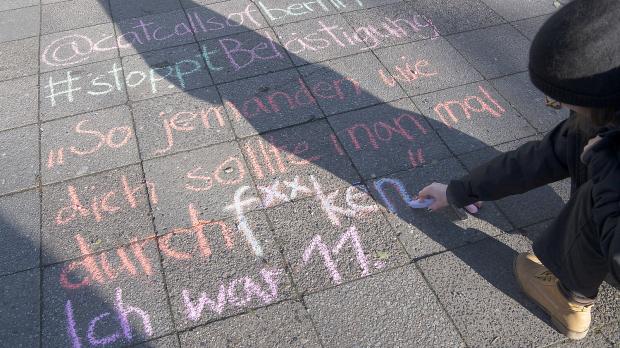 @catcallsofberlin
#stopptBelästigung
„So jemanden wie
dich sollte man mal
durch f**ken"
Ich war 11.